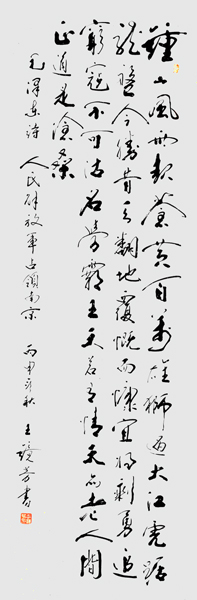 鐘山風雨起蒼黃百萬雄獅過大江虎踞
龍盤今勝昔天翻地覆慨而慷宜將剩勇追
窮寇不可沽名學霸王天若有情天亦老人間
正道是滄桑
毛澤東詩 人民解放軍占領南京 丙申秋 王芳書